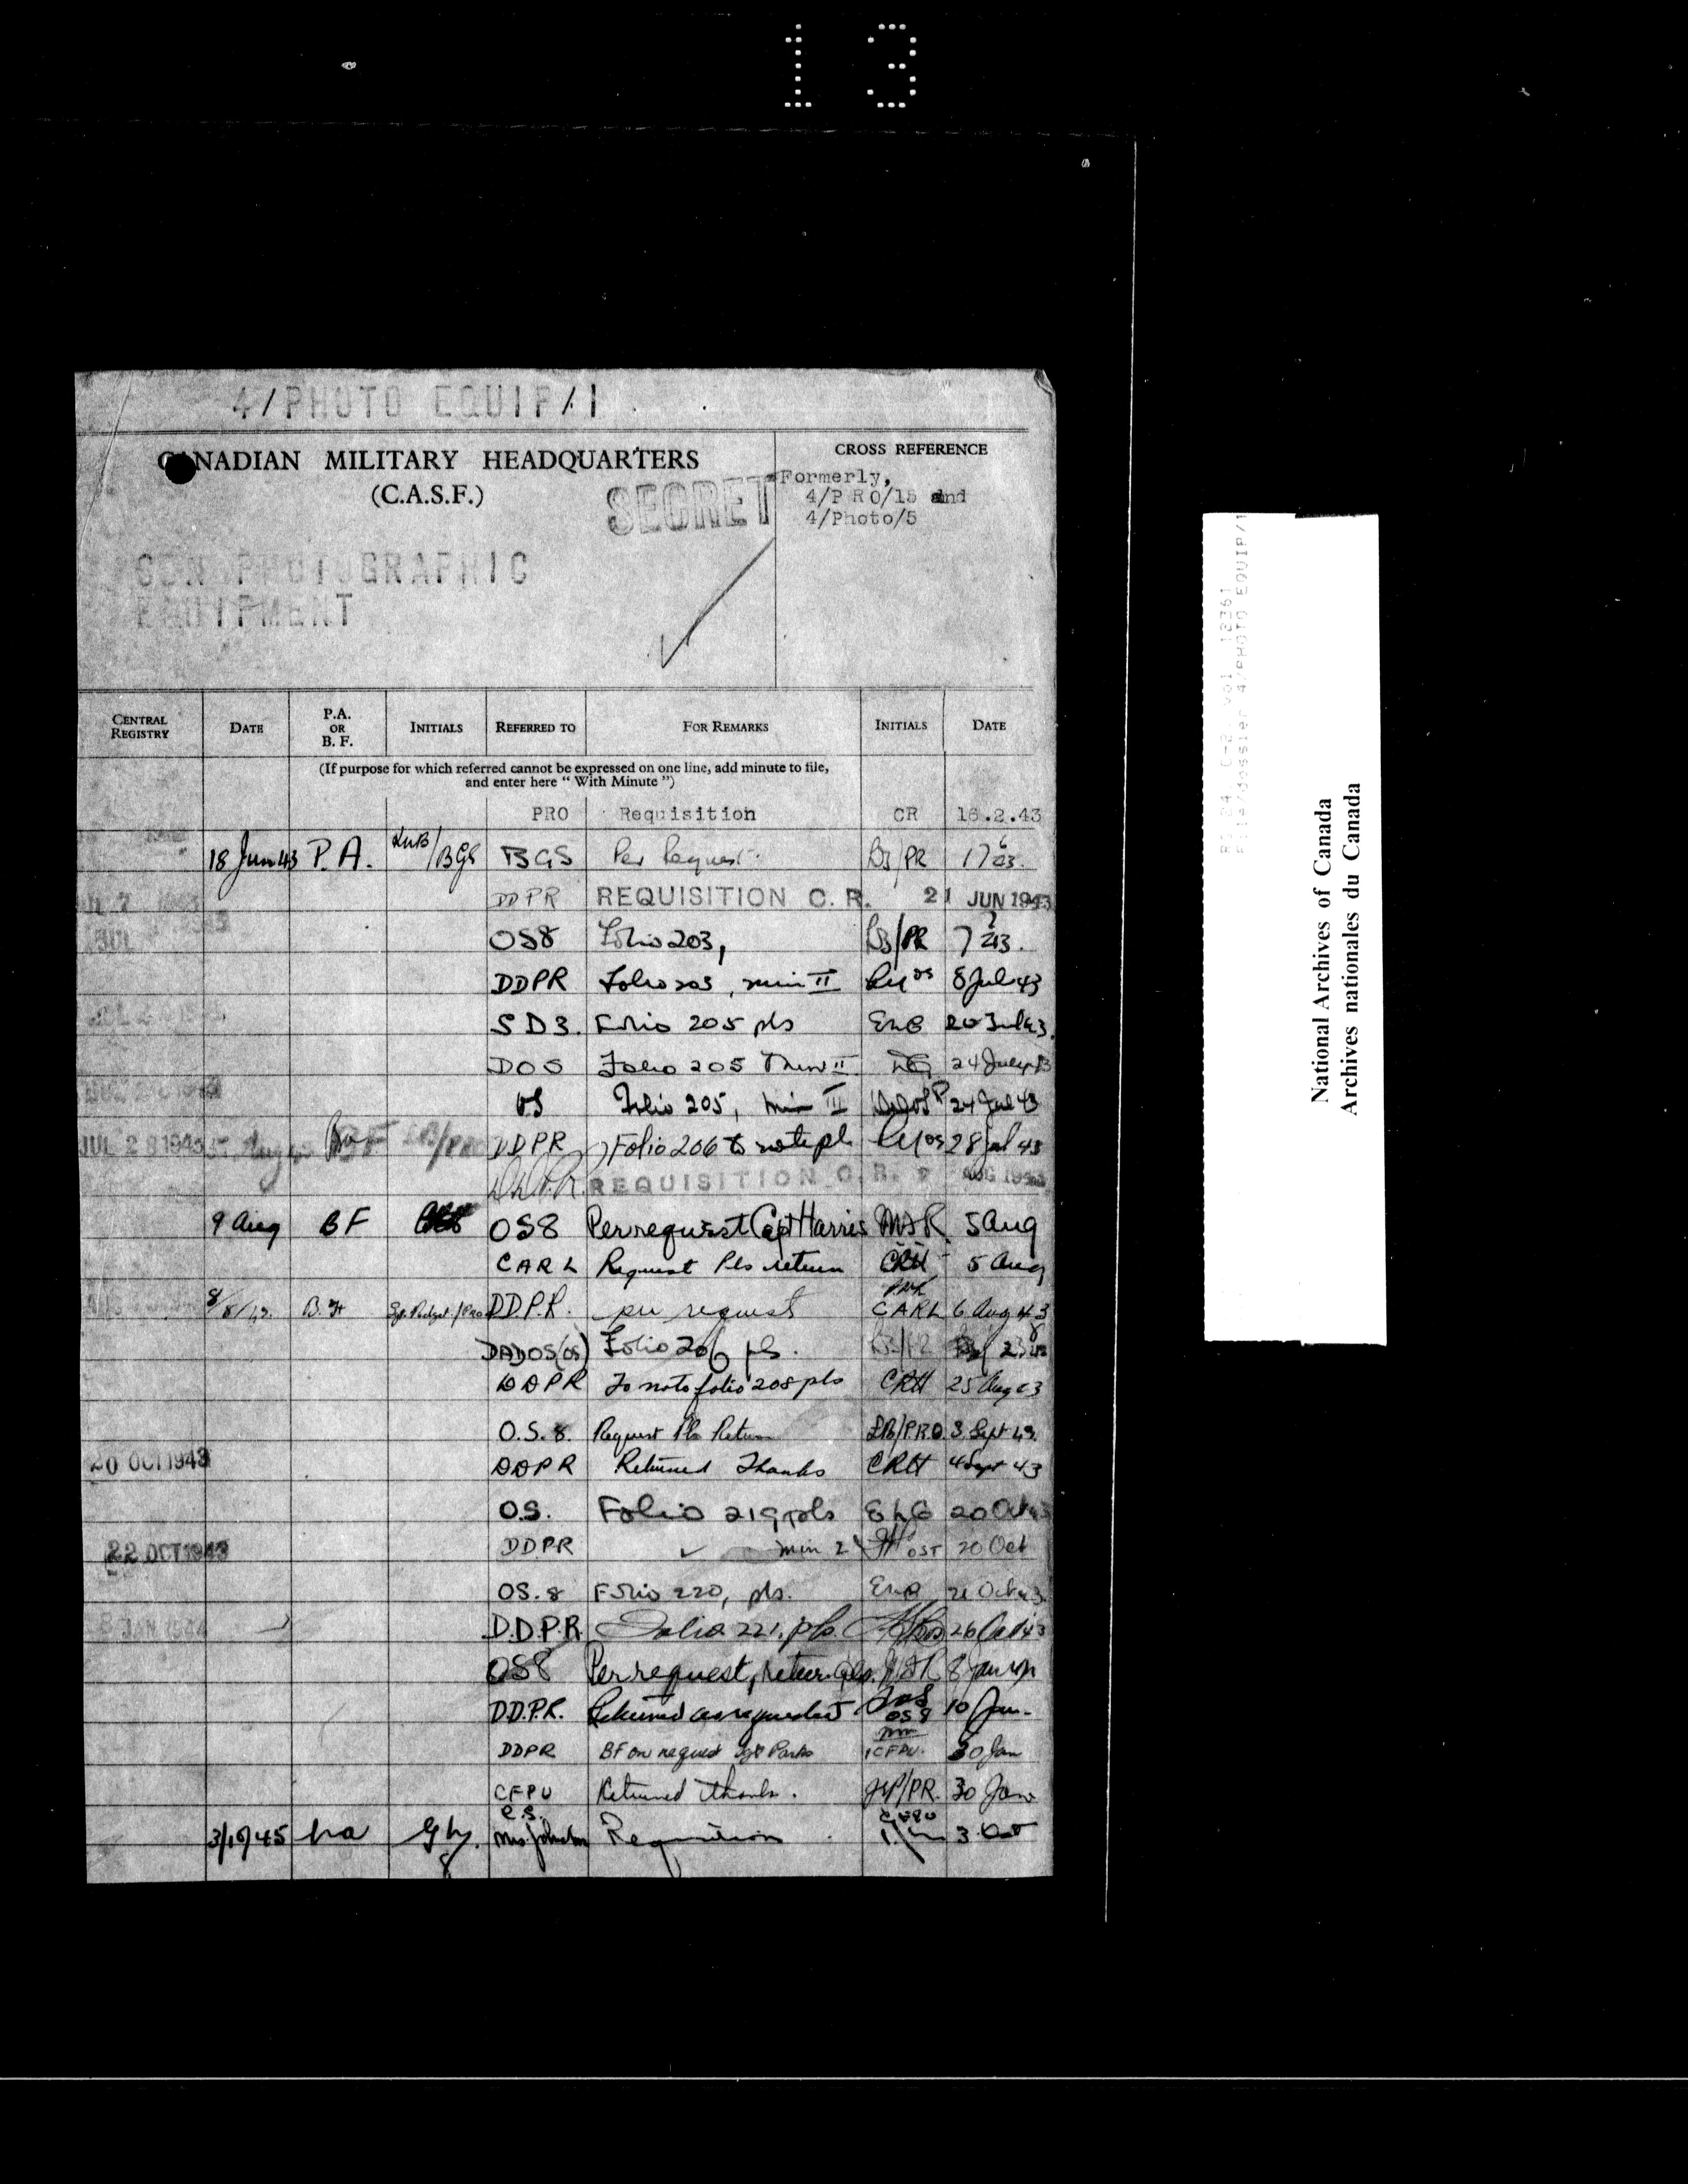 13
4/PHOTO EQUIP/1
CANADIAN MILITARY HEADQUARTERS
(C.A.S.F.)
SECRET
CROSS REFERENCE
Formerly,
4/P R O/15 and
4/Photo/5
GEN PHOTOGRAPHIC
EQUIPMENT
CENTRAL REGISTRY DATE P.A. OR B. F. INITIALS REFERRED TO FOR REMARKS INITIALS DATE
(If purpose for which referred cannot be expressed on one line, add minute to file,
and enter here " With Minute ")
PRO Requisition CR 16.2.43
18 Jun 43 P.A. BGS BGS Per Request. B3/PR 17 6 43.
DDPR REQUISITION C.R. 21 JUN 1943
JUL
OS8 Folio 203, PR 7 7 43.
DDPR Folio 203, min II 8 Jul 43
SD3. Folio 205 pls ELB 20 Jul 43.
DOS Folio 205 Min II 24 July 43
OS Folio 205, min III 24 Jul 43
JUL 28 1943 BF DDPR Folio 206 to note pls 28 Jul 43
REQUISITION C.R. 7 AUG 1943
9 Aug BF OS8 Per request Capt Harris MJR. 5 Aug
CARL Request Pls return CRH 5 Aug
B.F. D.D.P.R. per request CARL 6 Aug 43
DADOS(OS) Folio 206 pls.
DDPR To note folio 208 pls CRH 25 Aug 43
O.S.8. Request Pls Return /P.R.O. 3 Sept 43.
20 OCT 1943 DDPR Returned Thanks CRH 4 Sept 43
O.S. Folio 219 pls ELB 20 Oct 43
22 OCT 1943 DDPR ✓ min 2 20 Oct
OS.8 Folio 220, pls. ELB 21 Oct 43.
8 JAN 1944 D.D.P.R. Folio 221, pls. 26 Oct 43
OS8 Per request, return pls. MJR 8 Jan 44
D.D.P.R. Returned as requested OS8 10 Jan.
DDPR BF on request Sgt Parks CFPU. 30 Jan
CFPU Returned thanks. /PR. 30 Jan
3/10/45 Mrs. Johnston Requisition 3 Oct
File/dossier 4/PHOTO EQUIP/1
National Archives of Canada
Archives nationales du Canada